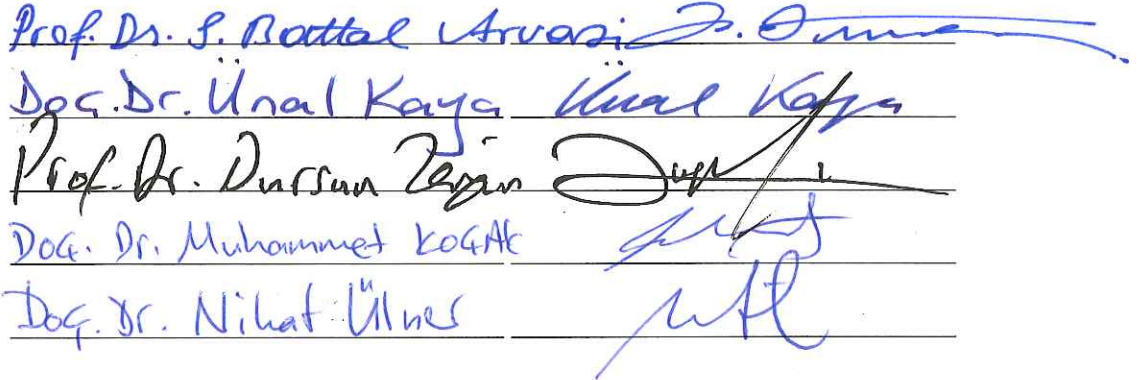 Prof. Dr. S. Battal Arvasi
Doç. Dr. Ünal Kaya Ünal Kaya
Prof. Dr. Dursun
Doç. Dr. Muhammet KOÇAK
Doç. Dr. Nihat Ülner